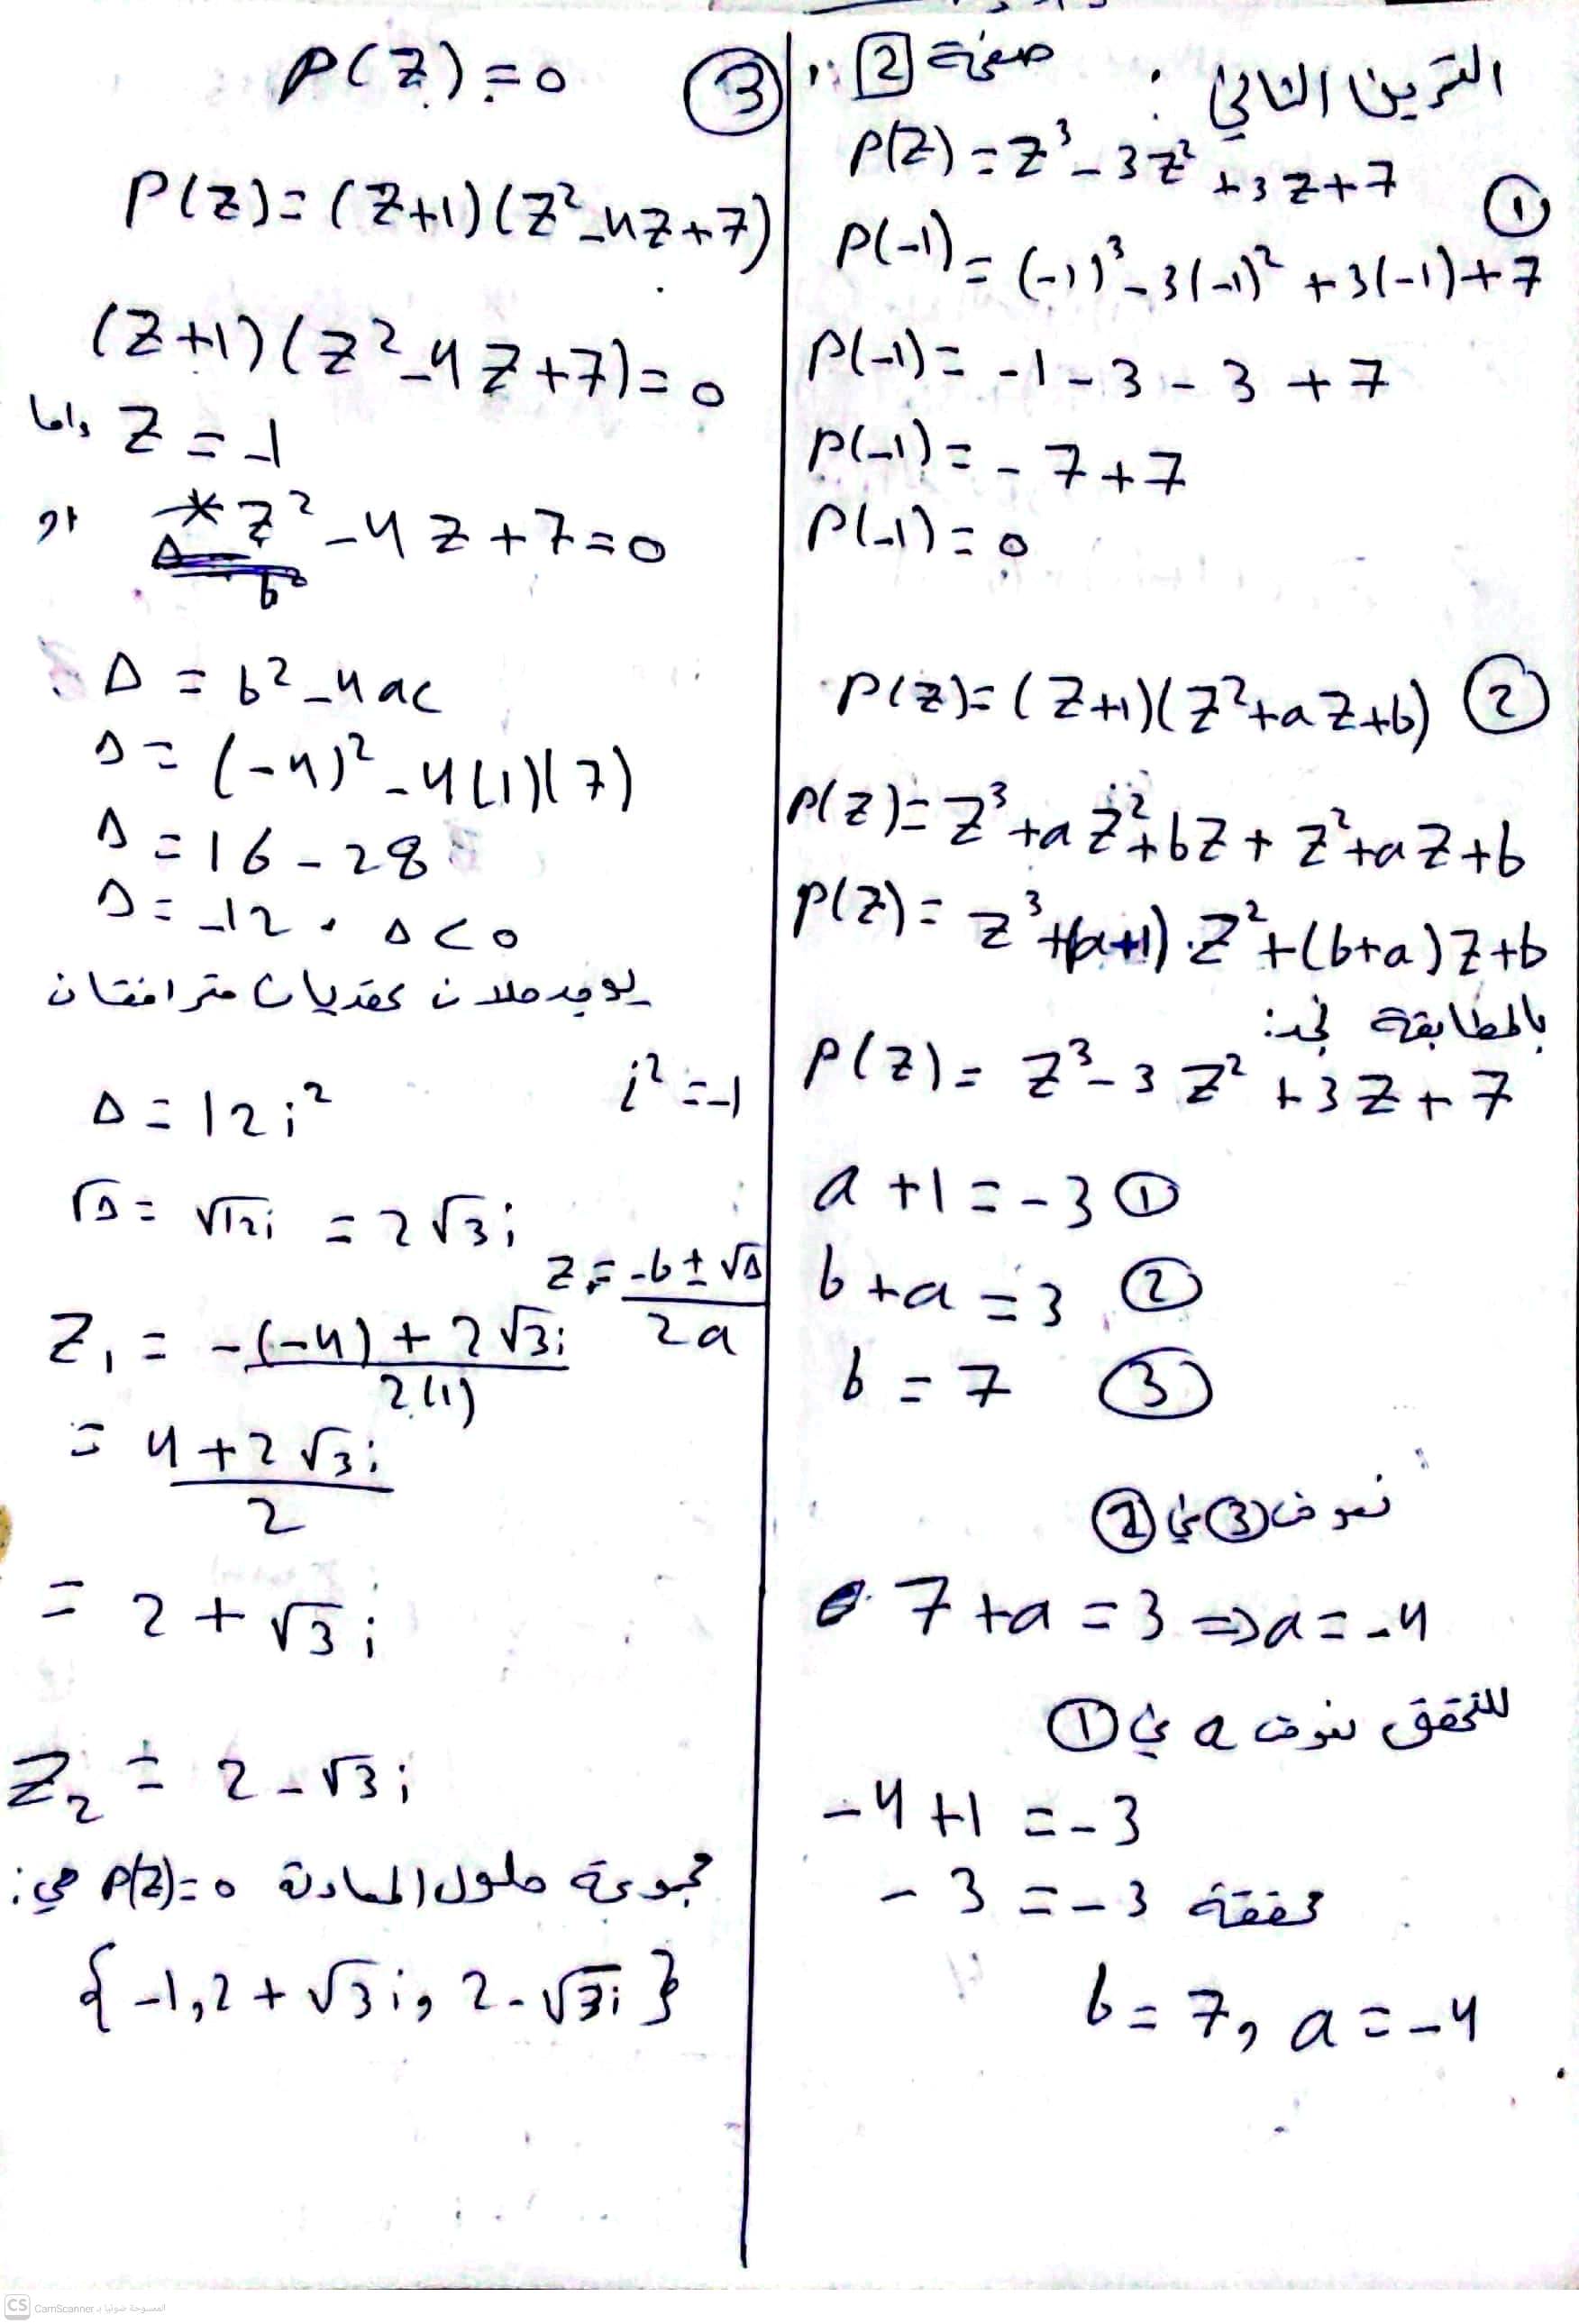 التمرين الثاني : صفحة 2
P(Z) = Z³ - 3Z² + 3Z + 7
①
P(-1) = (-1)³ - 3(-1)² + 3(-1) + 7
P(-1) = -1 - 3 - 3 + 7
P(-1) = -7 + 7
P(-1) = 0
P(Z) = (Z+1)(Z² + aZ + b) ②
P(Z) = Z³ + aZ² + bZ + Z² + aZ + b
P(Z) = Z³ + (a+1) Z² + (b+a)Z + b
بالمطابقة نجد:
P(Z) = Z³ - 3Z² + 3Z + 7
a + 1 = -3 ①
b + a = 3 ②
b = 7 ③
نعوض ③ في ②
7 + a = 3 ⇒ a = -4
للتحقق نعوض a في ①
-4 + 1 = -3
-3 = -3 محققة
b = 7, a = -4
P(Z) = 0 ③
P(Z) = (Z+1)(Z² - 4Z + 7)
(Z+1)(Z² - 4Z + 7) = 0
واما Z = -1
او * Z² - 4Z + 7 = 0
Δ = b² - 4ac
Δ = (-4)² - 4(1)(7)
Δ = 16 - 28
Δ = -12 , Δ < 0
يوجد حلان عقديان مترافقان
Δ = 12i² i² = -1
√Δ = √12i = 2√3i
Z = (-b ± √Δ)/2a
Z₁ = (-(-4) + 2√3i)/2(1)
= (4 + 2√3i)/2
= 2 + √3i
Z₂ = 2 - √3i
مجموعة حلول المعادلة P(Z)=0 هي:
{-1, 2 + √3i, 2 - √3i}
CS CamScanner الممسوحة ضوئيا بـ